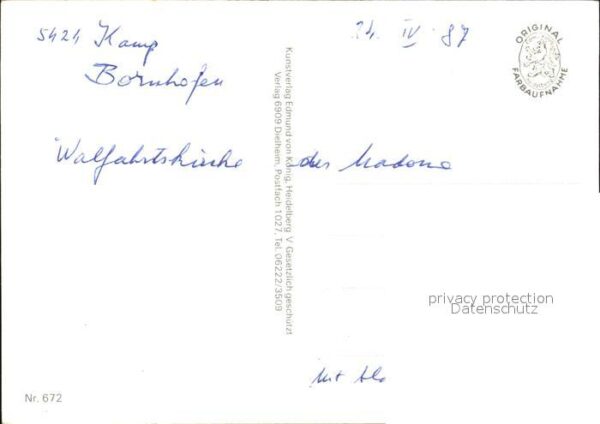 5424 Kamp
Bornhofen
24. IV 87
ORIGINAL
FARBAUFNAHME
Walfahrtskirche der Madona
Kunstverlag Edmund von König, Heidelberg V Gesetzlich geschützt
Verlag 6909 Dielheim, Postfach 1027, Tel. 06222/3509
privacy protection
Datenschutz
Nr. 672